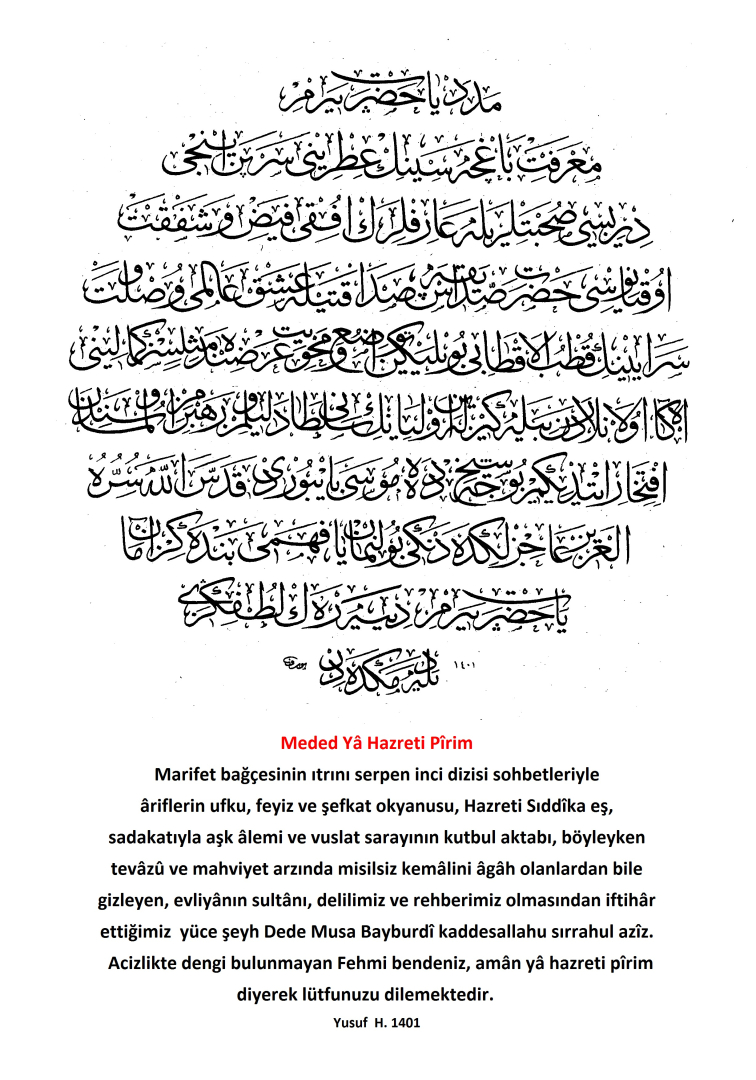 مدد یا حضرت پیرم
معرفت باغچه سینك عطرینی سرپن اینجی
دیزیسی صحبتلریله عارفلرك افقی فیض و شفقت
اوقیانوسی حضرت صدیقه اش صداقتیله عشق عالمی و وصلت
سراینك قطب الاقطابی بویله یكن تواضع و محویت عرضنده مثلسز كمالینی
آگاه اولانلردن بیله گیزلین اولیانك سلطانی دلیلمز و رهبرمز اولماسندن
افتخار ایتدیگمز یوجه شیخ دده موسی بایبوردی قدس الله سره
العزیز عاجزلكده دنگی بولنمایان فهمی بنده كز امان
یا حضرت پیرم دییه رك لطفكزی
دیلمكده در ١٤٠١
Meded Yâ Hazreti Pîrim
Marifet bağçesinin ıtrını serpen inci dizisi sohbetleriyle
âriflerin ufku, feyiz ve şefkat okyanusu, Hazreti Sıddîka eş,
sadakatıyla aşk âlemi ve vuslat sarayının kutbul aktabı, böyleyken
tevâzû ve mahviyet arzında misilsiz kemâlini âgâh olanlardan bile
gizleyen, evliyânın sultânı, delilimiz ve rehberimiz olmasından iftihâr
ettiğimiz yüce şeyh Dede Musa Bayburdî kaddesallahu sırrahul azîz.
Acizlikte dengi bulunmayan Fehmi bendeniz, amân yâ hazreti pîrim
diyerek lütfunuzu dilemektedir.
Yusuf H. 1401